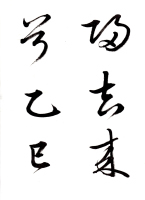 歸去來
兮乙巳